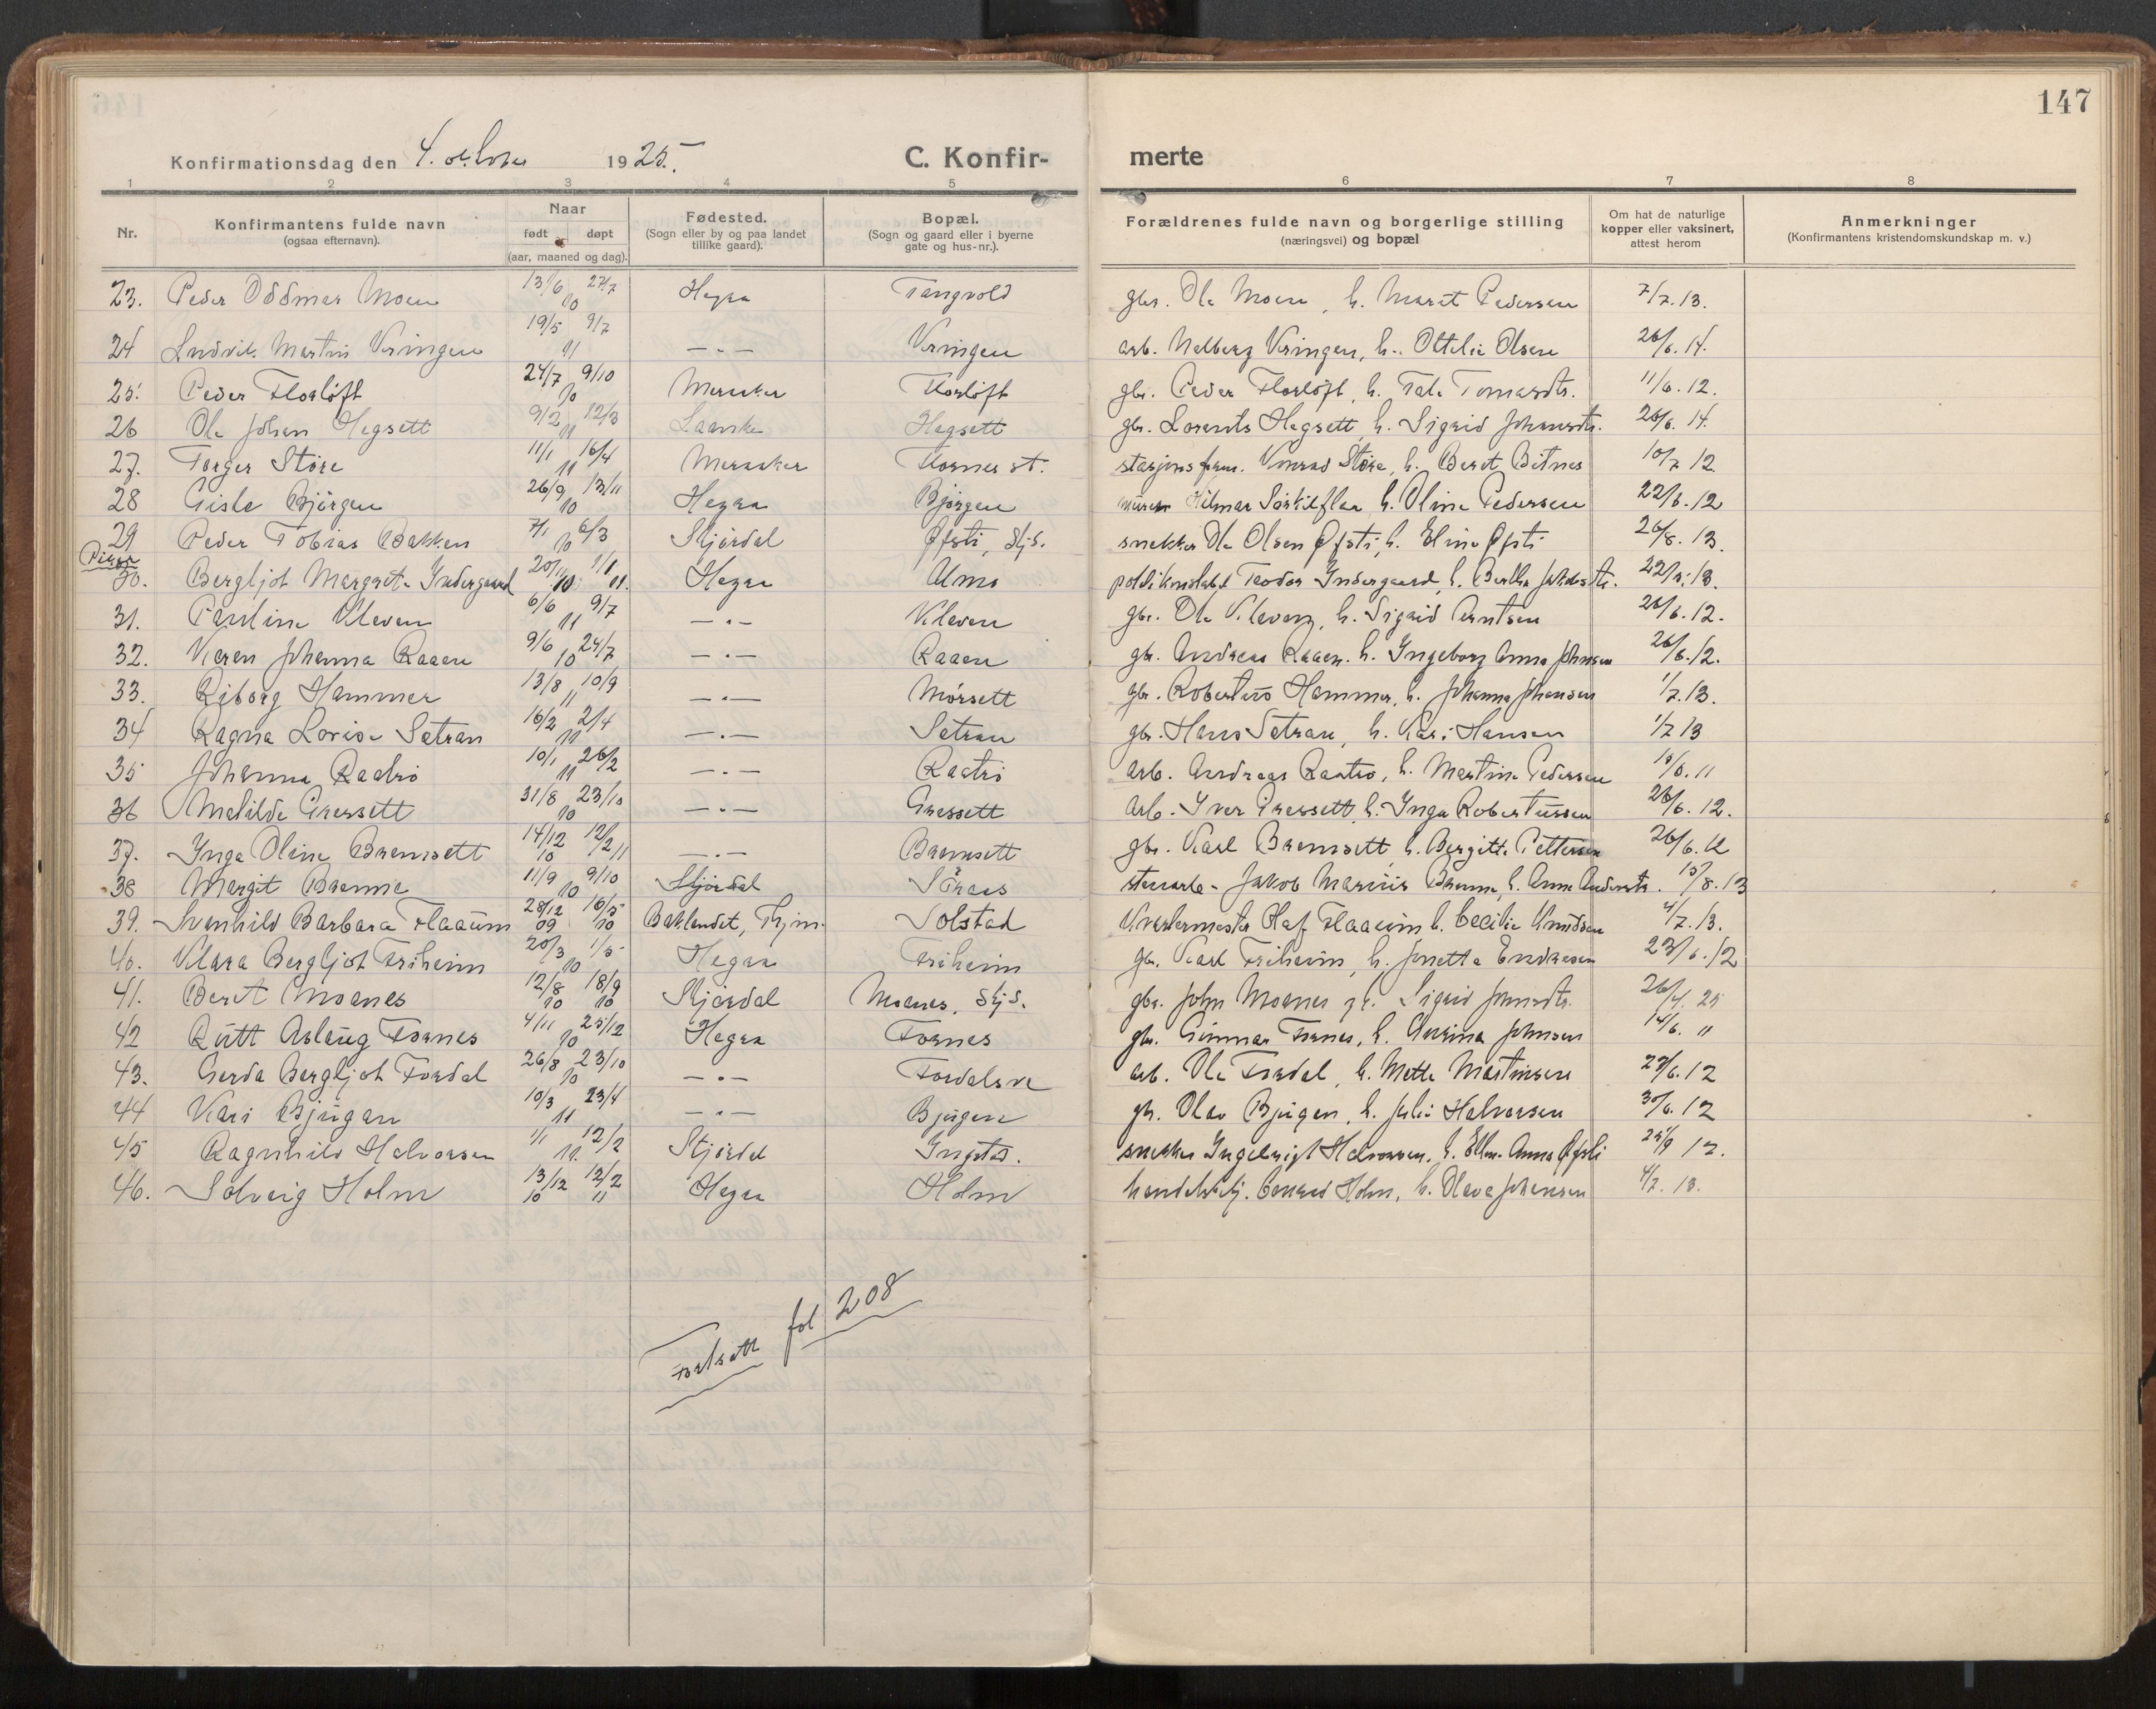 147
Konfirmationsdag den 4. october 1925.
C. Konfir-
merte
1 2 3 4 5 6 7 8
Nr.
Konfirmantens fulde navn
(ogsaa efternavn).
Naar
født døpt
(aar, maaned og dag).
Fødested.
(Sogn eller by og paa landet
tillike gaard).
Bopæl.
(Sogn og gaard eller i byerne
gate og hus-nr.).
Forældrenes fulde navn og borgerlige stilling
(næringsvei) og bopæl
Om hat de naturlige
kopper eller vaksinert,
attest herom
Anmerkninger
(Konfirmantens kristendomskundskap m. v.)
23. Peder Oddmar Moen 13/6 27/7 10 Hegra Tangvold gbr. Ole Moen, h. Marit Pedersen 7/7. 13.
24 Ludvik Martin Veringen 19/5 9/7 11 —"— Veringen arb. Halberg Veringen, h. Ottelie Olsen 26/6. 14.
25. Peder Florløft 24/7 9/10 10 Meraker Florløft gbr. Peder Florløft, h. Tomasdtr. 11/6. 12.
26 Ole Johan Hegsett 9/2 12/3 11 Laanke Hegsett gbr. Lorents Hegsett h. Sigrid Johansdtr. 26/6. 14.
27. Torger Støre 11/1 16/4 11 Meraker Flornes st. stasjonsform. Konrad Støre, h. Beret Bitnes 10/7 12.
28 Gisle Bjørgen 26/9 13/11 10 Hegra Bjørgen murer Hilmar h. Oline Pedersen 22/6. 12
29 Peder Tobias Bakken 7/1 6/3 10 Stjørdal Øfsti, Stj.s. snekker Ole Olsen Øfsti, h. Eline Øfsti 26/8. 13.
Piker
30. Bergljot Margrete Indergaard 20/11 10 1/1 11. Hegra Almo politikonstabel Teodor Indergaard, h. Bertha 22/8. 13.
31. Pauline Kleven 6/6 9/7 11 —"— Kleven gbr. Ole Kleven, h. Sigrid Arntsen 26/6. 12.
32. Karen Johanna Raaen 9/6 24/7 10 —"— Raaen gbr. Andreas Raaen. h. Ingeborg Anna Johnsen 26/6. 12.
33. Riborg Hammer 13/8 10/9 11 —"— Mørsett gbr. Robertus Hammer, h. Johanna Johansen 1/7. 13.
34 Ragna Lovise Sætran 16/2 2/4 11 —"— Sætran gbr. Hans Sætran, h. Kari Hansen 1/7 13
35 Johanna Raatrø 10/1 26/2 11 —"— Raatrø arb. Andreas Raatrø, h. Martine Pedersen 11
36 Matilde Græssett 31/8 23/10 10 —"— Græssett arb. Iver Græssett h. Inga Robertussen 26/6. 12.
37. Inga Oline Bremsett 14/12 10 12/2 11 —"— Bremsett gbr. Karl Bremsett h. Bergitte Pettersen 26/6. 12
38 Margit Brenne 11/9 9/10 10 Stjørdal Jakob Marius Brenne, h. Anne Andersdtr. 15/8. 13
39. Svenhild Barbara Flaaum 28/12 09 16/5 10 Baklandet, Thjm. Solstad Kvartermester Olaf Flaaum h. Cecilie Knudsen 4/7. 13.
40. Klara Bergljot Friheim 20/3 1/5 10 Hegra Friheim gbr. Karl Friheim, h. Josetta Endresen 23/6. 12
41. Beret Moanes 12/8 10 18/9 10 Stjørdal Moanes, Stj.s. gbr. John Moanes og h. Sigrid Johnsdtr. 26/4. 25
42 Rutt Aslaug Fornes 4/11 25/12 10 Hegra Fornes gbr. Gunnar Fornes, h. Johnsen 14/6. 11
43. Gerda Bergljot Fordal 26/8 23/10 10 —"— Fordalsve arb. Ole Fordal, h. Mette Martinsen 27/6. 12
44 Kari Bjugan 10/3 23/4 11 —"— Bjugan gbr. Olav Bjugan, h. Julie Halvorsen 30/6. 12
45 Ragnhild Halvorsen 1/1 12/2 11. Stjørdal Ingstad. snekker Ingebrigt Halvorsen, h. Ellen Anna Øfsti 25/9 12.
46. Solveig Holm 13/12 10 12/2 11 Hegra Holm handelsbetj. Conrad Holm, h. Olava Johansen 4/7. 13.
Fortsatt fol 208